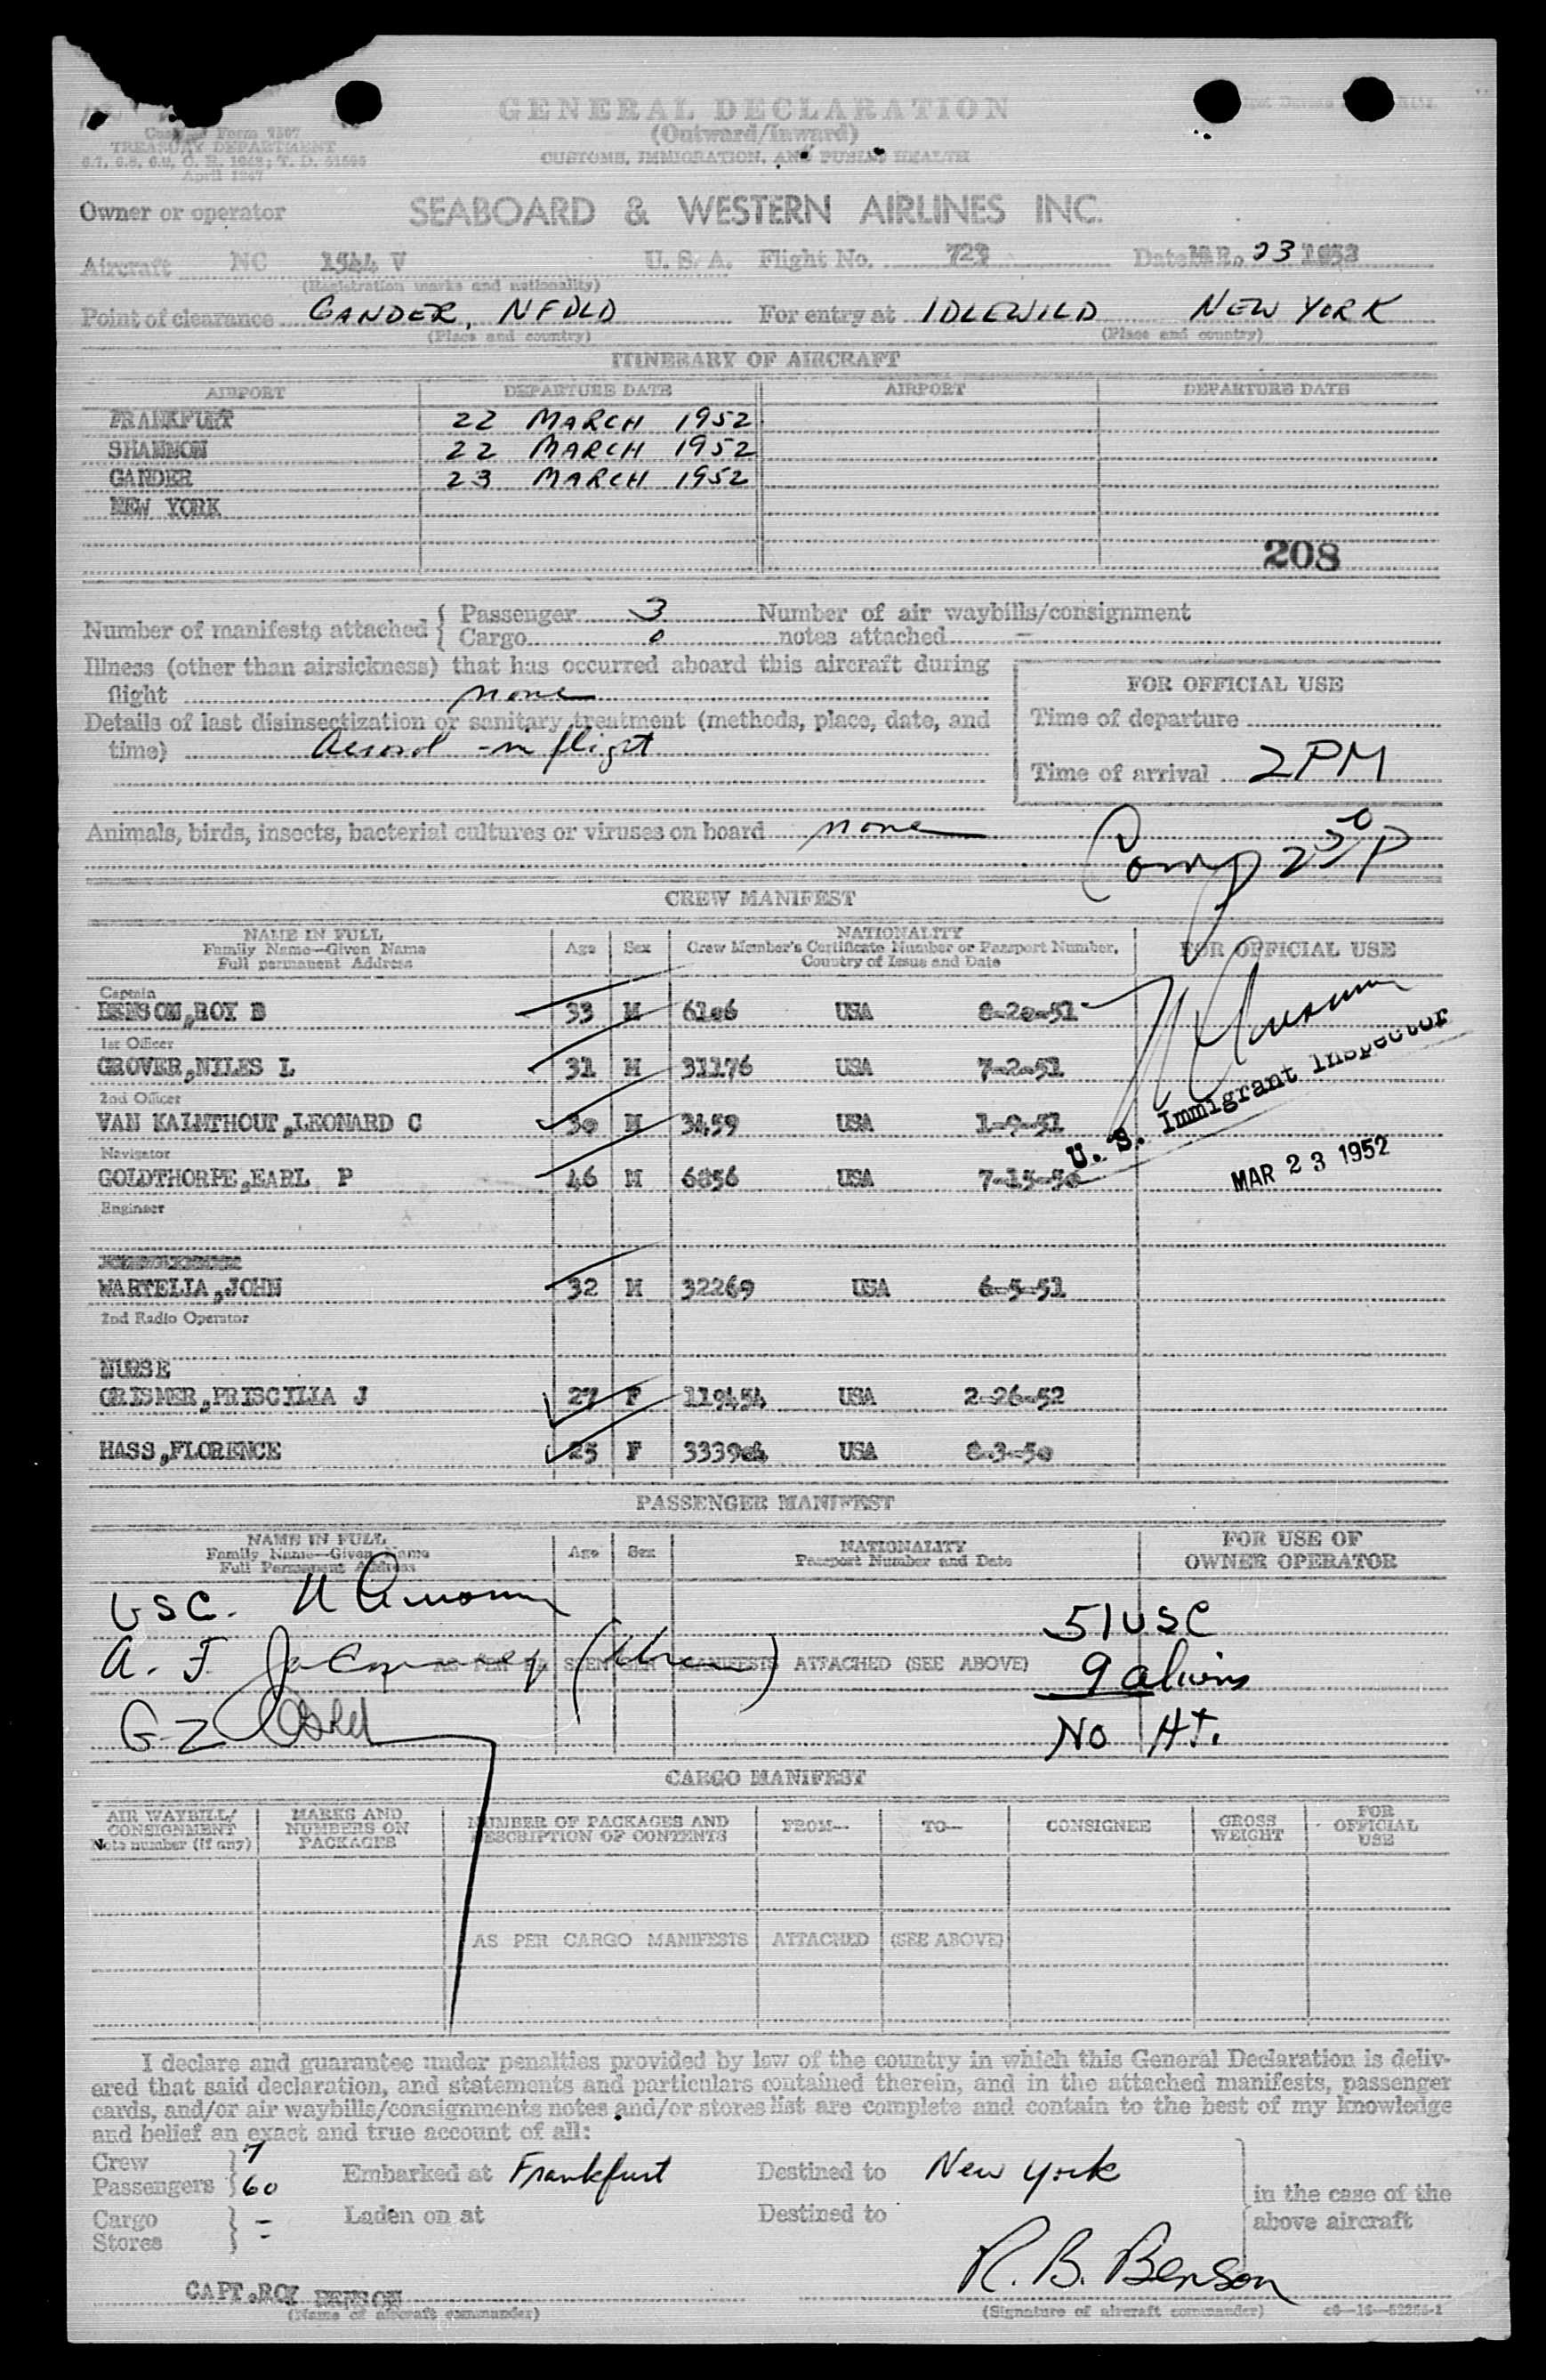 GENERAL DECLARATION
(Outward/Inward)
CUSTOMS, IMMIGRATION, AND PUBLIC HEALTH
Customs Form 7507
TREASURY DEPARTMENT
April 1947
Owner or operator SEABOARD & WESTERN AIRLINES INC.
Aircraft NC 1544 V U. S. A. Flight No. 723 Date MAR. 23 1952
(Registration marks and nationality)
Point of clearance GANDER, NFDLD For entry at IDLEWILD NEW YORK
(Place and country) (Place and country)
ITINERARY OF AIRCRAFT
AIRPORT DEPARTURE DATE AIRPORT DEPARTURE DATE
FRANKFURT 22 MARCH 1952
SHANNON 22 MARCH 1952
GANDER 23 MARCH 1952
NEW YORK
208
Number of manifests attached { Passenger 3 Number of air waybills/consignment
Cargo 0 notes attached —
Illness (other than airsickness) that has occurred aboard this aircraft during
flight none
FOR OFFICIAL USE
Details of last disinsectization or sanitary treatment (methods, place, date, and
time) Aerosol - in flight
Time of departure
Time of arrival 2PM
Animals, birds, insects, bacterial cultures or viruses on board none
Comp 2 50 P
CREW MANIFEST
NAME IN FULL
Family Name—Given Name
Full permanent Address
Age Sex
NATIONALITY
Crew Member's Certificate Number or Passport Number,
Country of Issue and Date
FOR OFFICIAL USE
Captain
BENSON,ROY B 33 M 6106 USA 8-20-51
1st Officer
GROVER,NILES L 31 M 31176 USA 7-2-51
2nd Officer
VAN KALMTHOUT,LEONARD C 30 M 3459 USA 1-9-51
U. S. Immigrant Inspector
Navigator
GOLDTHORPE,EARL P 46 M 6856 USA 7-15-50
MAR 23 1952
Engineer
MARTELIA,JOHN 32 M 32269 USA 6-5-51
2nd Radio Operator
NURSE
GRISMER,PRISCILLA J 27 F 119454 USA 2-26-52
HASS,FLORENCE 25 F 333904 USA 8-3-50
PASSENGER MANIFEST
NAME IN FULL
Family Name—Given Name
Full Permanent Address
Age Sex
NATIONALITY
Passport Number and Date
FOR USE OF
OWNER OPERATOR
USC.
51 USC
A. F.
AS PER PASSENGER MANIFESTS ATTACHED (SEE ABOVE)
9 aliens
G-Z
No HT.
CARGO MANIFEST
AIR WAYBILL/
CONSIGNMENT
Note number (if any)
MARKS AND
NUMBERS ON
PACKAGES
NUMBER OF PACKAGES AND
DESCRIPTION OF CONTENTS
FROM— TO— CONSIGNEE
GROSS
WEIGHT
FOR
OFFICIAL
USE
AS PER CARGO MANIFESTS ATTACHED (SEE ABOVE)
I declare and guarantee under penalties provided by law of the country in which this General Declaration is deliv-
ered that said declaration, and statements and particulars contained therein, and in the attached manifests, passenger
cards, and/or air waybills/consignments notes and/or stores list are complete and contain to the best of my knowledge
and belief an exact and true account of all:
Crew } 7
Passengers } 60 Embarked at Frankfurt Destined to New York
in the case of the
above aircraft
Cargo } -
Stores } - Laden on at Destined to
R. B. Benson
CAPT.ROY BENSON
(Name of aircraft commander) (Signature of aircraft commander)